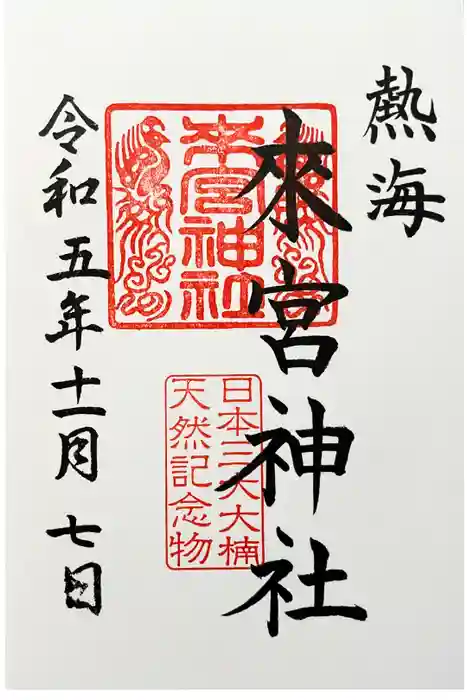 熱海
來宮神社
来宮神社
日本三大大楠
天然記念物
令和五年十一月七日